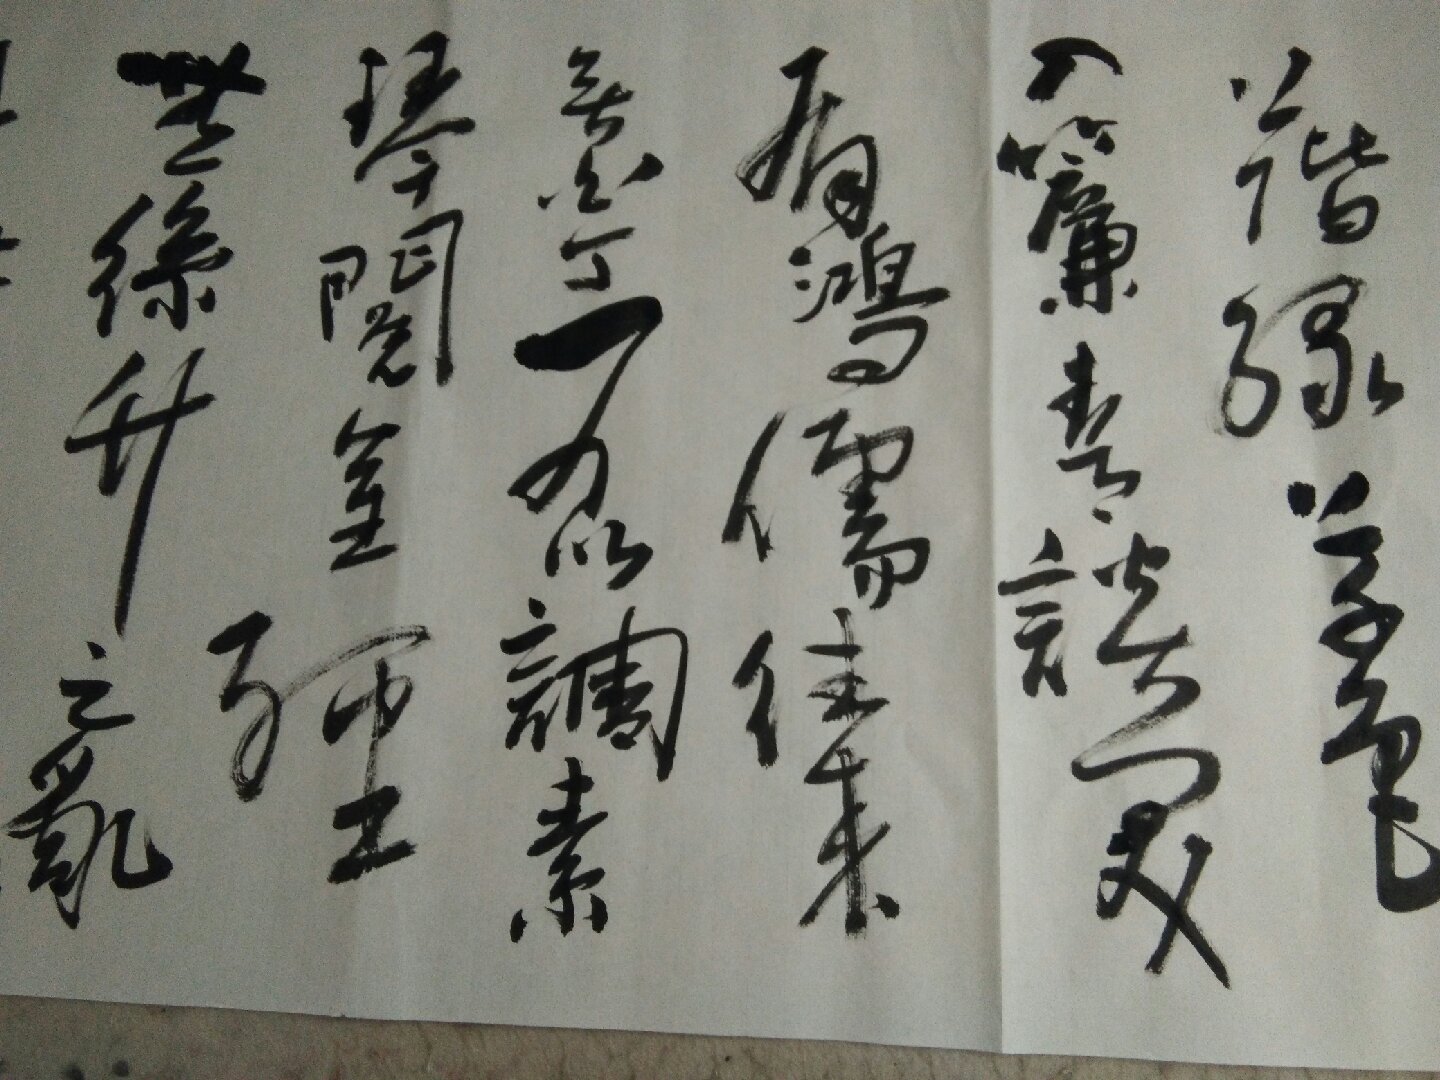 上階綠草色
入簾青談笑
有鴻儒往來
無白丁可以調素
琴閱金經
無絲竹之亂